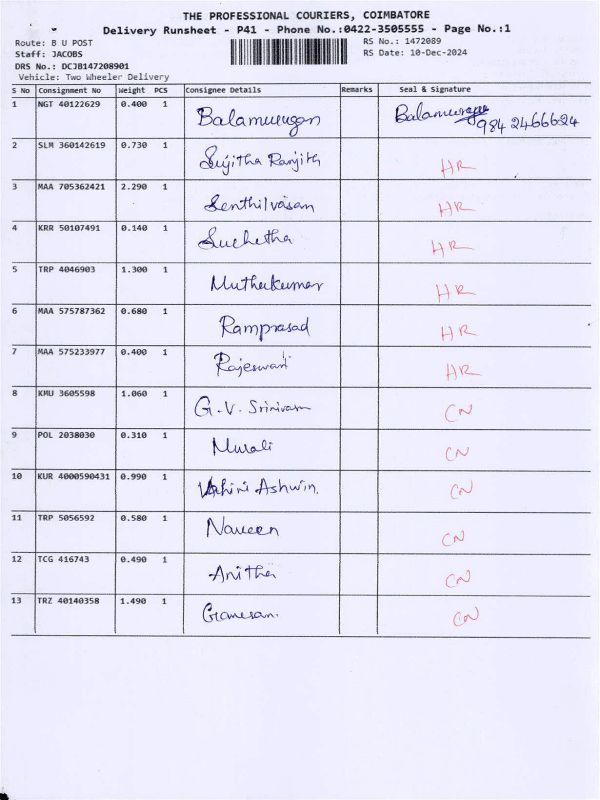 THE PROFESSIONAL COURIERS, COIMBATORE
Delivery Runsheet - P41 - Phone No.:0422-3505555 - Page No.:1
Route: B U POST RS No.: 1472089
Staff: JACOBS RS Date: 10-Dec-2024
DRS No.: DCJB147208901
Vehicle: Two Wheeler Delivery
S No Consignment No Weight PCS Consignee Details Remarks Seal & Signature
1 NGT 40122629 0.400 1 Balamurugan Balamurugan
9842466624
2 SLM 360142619 0.730 1 Sujitha Ranjith HR
3 MAA 705362421 2.290 1 Senthilvasan HR
4 KRR 50107491 0.140 1 Suchetha HR
5 TRP 4046903 1.300 1 Muthukumar HR
6 MAA 575787362 0.680 1 Ramprasad HR
7 MAA 575233977 0.400 1 Rajeswari HR
8 KMU 3605598 1.060 1 G.V. Srinivasan CN
9 POL 2038030 0.310 1 Murali CN
10 KUR 4000590431 0.990 1 Ashwin. CN
11 TRP 5056592 0.580 1 Naveen CN
12 TCG 416743 0.490 1 Anitha CN
13 TRZ 40140358 1.490 1 Ganesan. CN